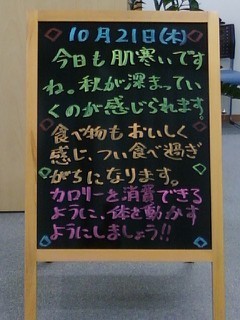 10月21日(木)
今日も肌寒いです
ね。秋が深まってい
くのが感じられます。
食べ物もおいしく
感じ、つい食べ過ぎ
がちになります。
カロリーを消費できる
ように、体を動かす
ようにしましょう!!